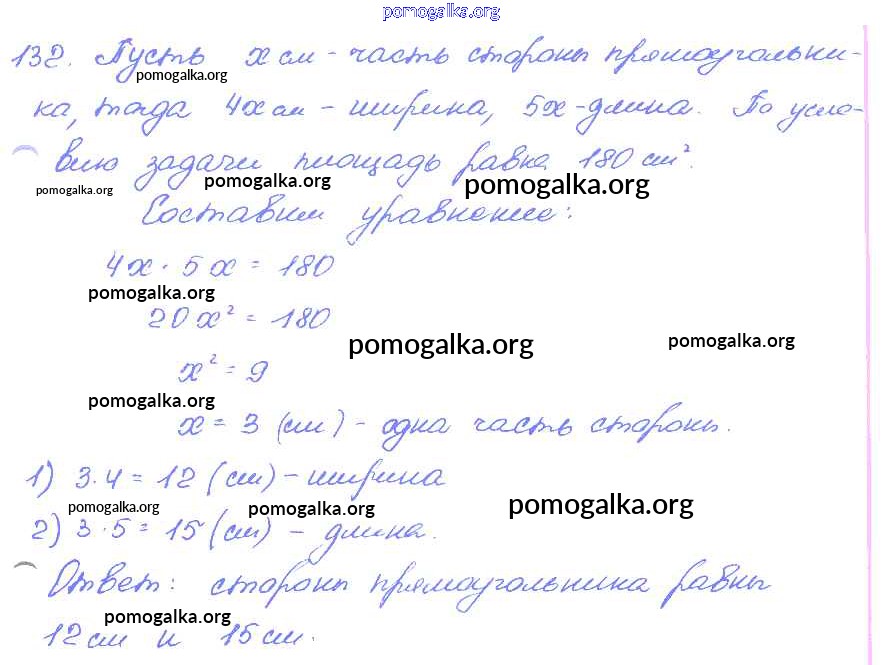 pomogalka.org
132. Пусть x см - часть стороны прямоугольни-
pomogalka.org
ка, тогда 4x см - ширина, 5x - длина. По усло-
вию задачи площадь равна 180 см².
pomogalka.org pomogalka.org pomogalka.org
Составим уравнение:
4x · 5x = 180
pomogalka.org
20x² = 180
pomogalka.org pomogalka.org
x² = 9
pomogalka.org
x = 3 (см) - одна часть стороны.
1) 3·4 = 12 (см) - ширина
pomogalka.org pomogalka.org pomogalka.org
2) 3·5 = 15 (см) - длина.
Ответ: стороны прямоугольника равны
pomogalka.org
12 см и 15 см.